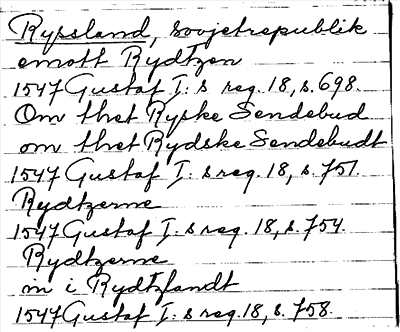 Rysland, Sovjetrepublik
emott Rydtzen
1547 Gustaf I:s reg. 18, s. 698.
Om thet Ryske Sendebud
om thet Rydske Sendebudt
1547 Gustaf I:s reg. 18, s. 751.
Rydtzerne
1547 Gustaf I:s reg. 18, s. 754.
Rydtzerne
in i Rydtzlandt
1547 Gustaf I:s reg. 18, s. 758.